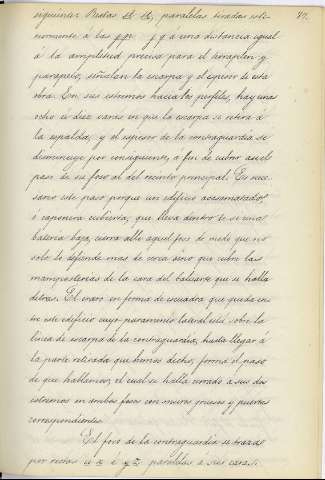 siguiente: Rectas tt. tt, paralelas tiradas este- 70.
riormente á las pp. y q á una distancia igual
á la amplitud precisa para el terraplen y
parapeto, señalan la escarpa y el espesor de esta
obra. En sus estremos hacia los perfiles, hay unas
ocho ó diez varas en que la escarpa se retira á
la espalda, y el espesor de la contraguardia se
disminuye por consiguiente, a fin de cubrir asi el
paso de su foso al del recinto principal. Es nece-
sario este paso porque un edificio acasamatado
ó caponera cubierta, que lleva dentro de si una
bateria baja, cierra alli aquel foso de modo que no
solo le defiende mas de cerca sino que cubre las
mamposterias de la cara del baluarte que se halla
detras. El craso en forma de escuadra que queda en-
tre este edificio cuyo paramento lateral está sobre la
linea de escarpa de la contraguardia, hasta llegar á
la parte retirada que hemos dicho, forma el paso
de que hablamos, el cual se halla cerrado a sus dos
estremos en ambos fosos con muros gruesos y puertas
correspondientes.
El foso de la contraguardia se trazas
por rectas u z é y z paralelas á sus caras.